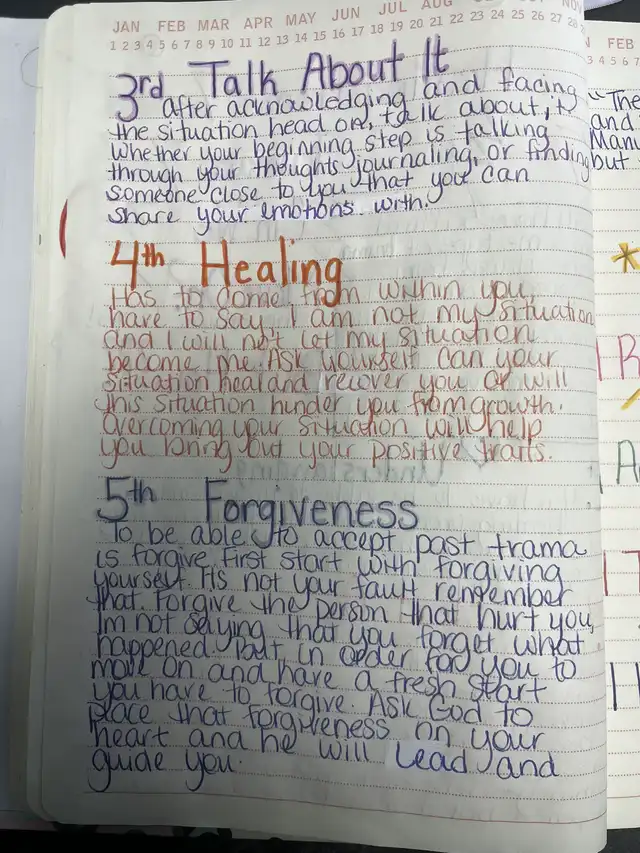 JAN FEB MAR APR MAY JUN JUL AUG NOV
1 2 3 4 5 6 7 8 9 10 11 12 13 14 15 16 17 18 19 20 21 22 23 24 25 26 27 28
FEB
3 4 5 6 7
3rd Talk About It
after acknowledging and facing
the situation head on, talk about it
Whether your beginning step is talking
through your thoughts journaling, or finding
someone close to you that you can
share your emotions with.
"The
and
Manu
but
4th Healing
Has to come from within you,
have to say, I am not my situation
and I will not let my situation
become me. Ask yourself can your
situation heal and recover you or will
this situation hinder you from growth.
Overcoming your situation will help
you bring out your positive traits.
5th Forgiveness
To be able to accept past trama
is forgive. First start with forgiving
yourself. Its not your fault remember
that. Forgive the person that hurt you,
I'm not saying that you forget what
happened. But in order for you to
move on and have a fresh start
you have to forgive. Ask God to
place that forgiveness on your
heart and he will lead and
guide you.
R
A